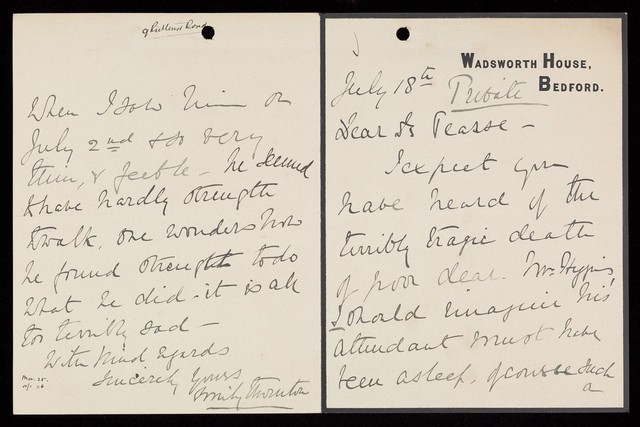 When I saw him on
July 2nd & so very
thin, & feeble - he seemed
to have hardly strength
to walk, one wonders how
he found strength to do
what he did - it is all
too terribly sad -
With kind regards
Sincerely yours
Emily Thornton
WADSWORTH HOUSE,
BEDFORD.
July 18th Private
Dear Dr Pearse -
I expect you
have heard of the
terribly tragic death
of poor dear Mr Higgins
I should imagine his
attendant must have
been asleep, of course such
a